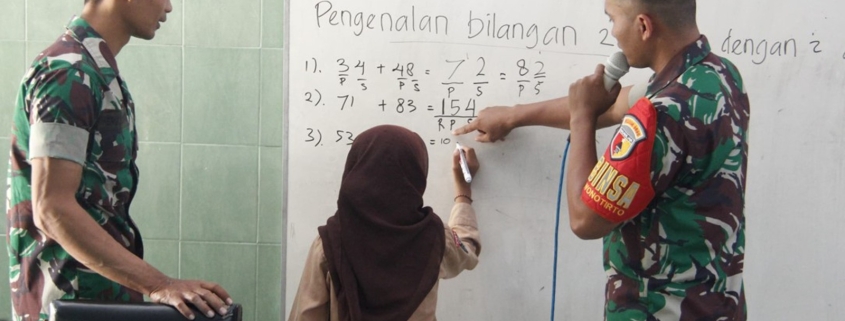 Pengenalan bilangan 2 dengan 2
1). 34 + 48 = 7 2 = 82
P S P S P S P S
2). 71 + 83 = 154
R P S
3) 53 = 10
BINSA
WONOTIRTO